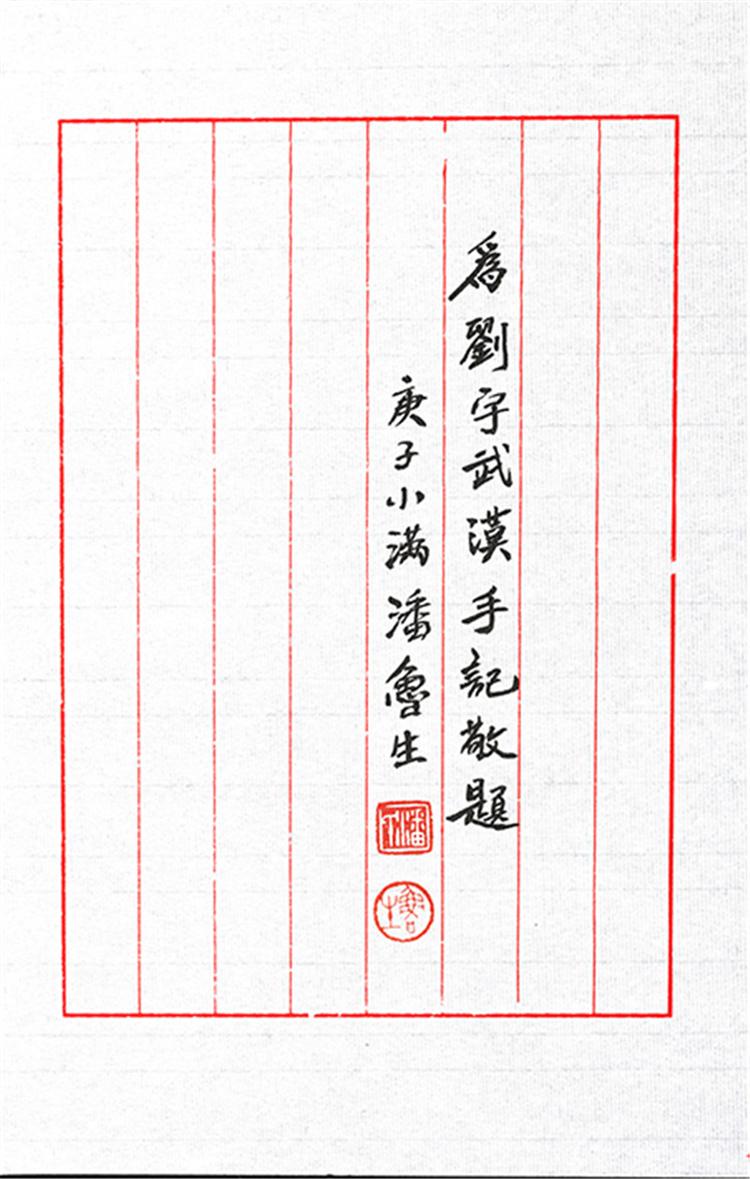 爲劉宇武漢手記敬題
庚子小满潘魯生
潘印
魯生